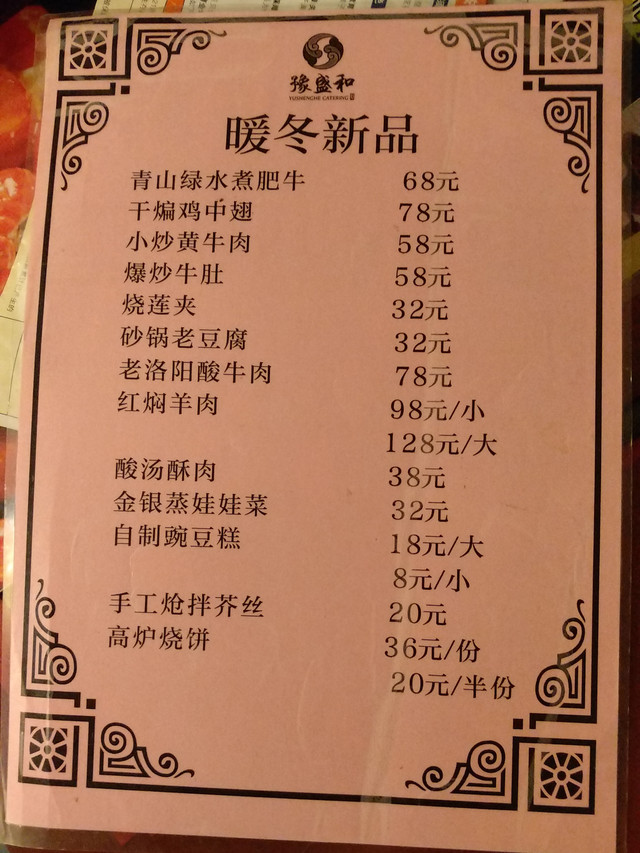 豫盛和
YUSHENGHE CATERING
暖冬新品
青山绿水煮肥牛 68元
干煸鸡中翅 78元
小炒黄牛肉 58元
爆炒牛肚 58元
烧莲夹 32元
砂锅老豆腐 32元
老洛阳酸牛肉 78元
红焖羊肉 98元/小
128元/大
酸汤酥肉 38元
金银蒸娃娃菜 32元
自制豌豆糕 18元/大
8元/小
手工炝拌芥丝 20元
高炉烧饼 36元/份
20元/半份